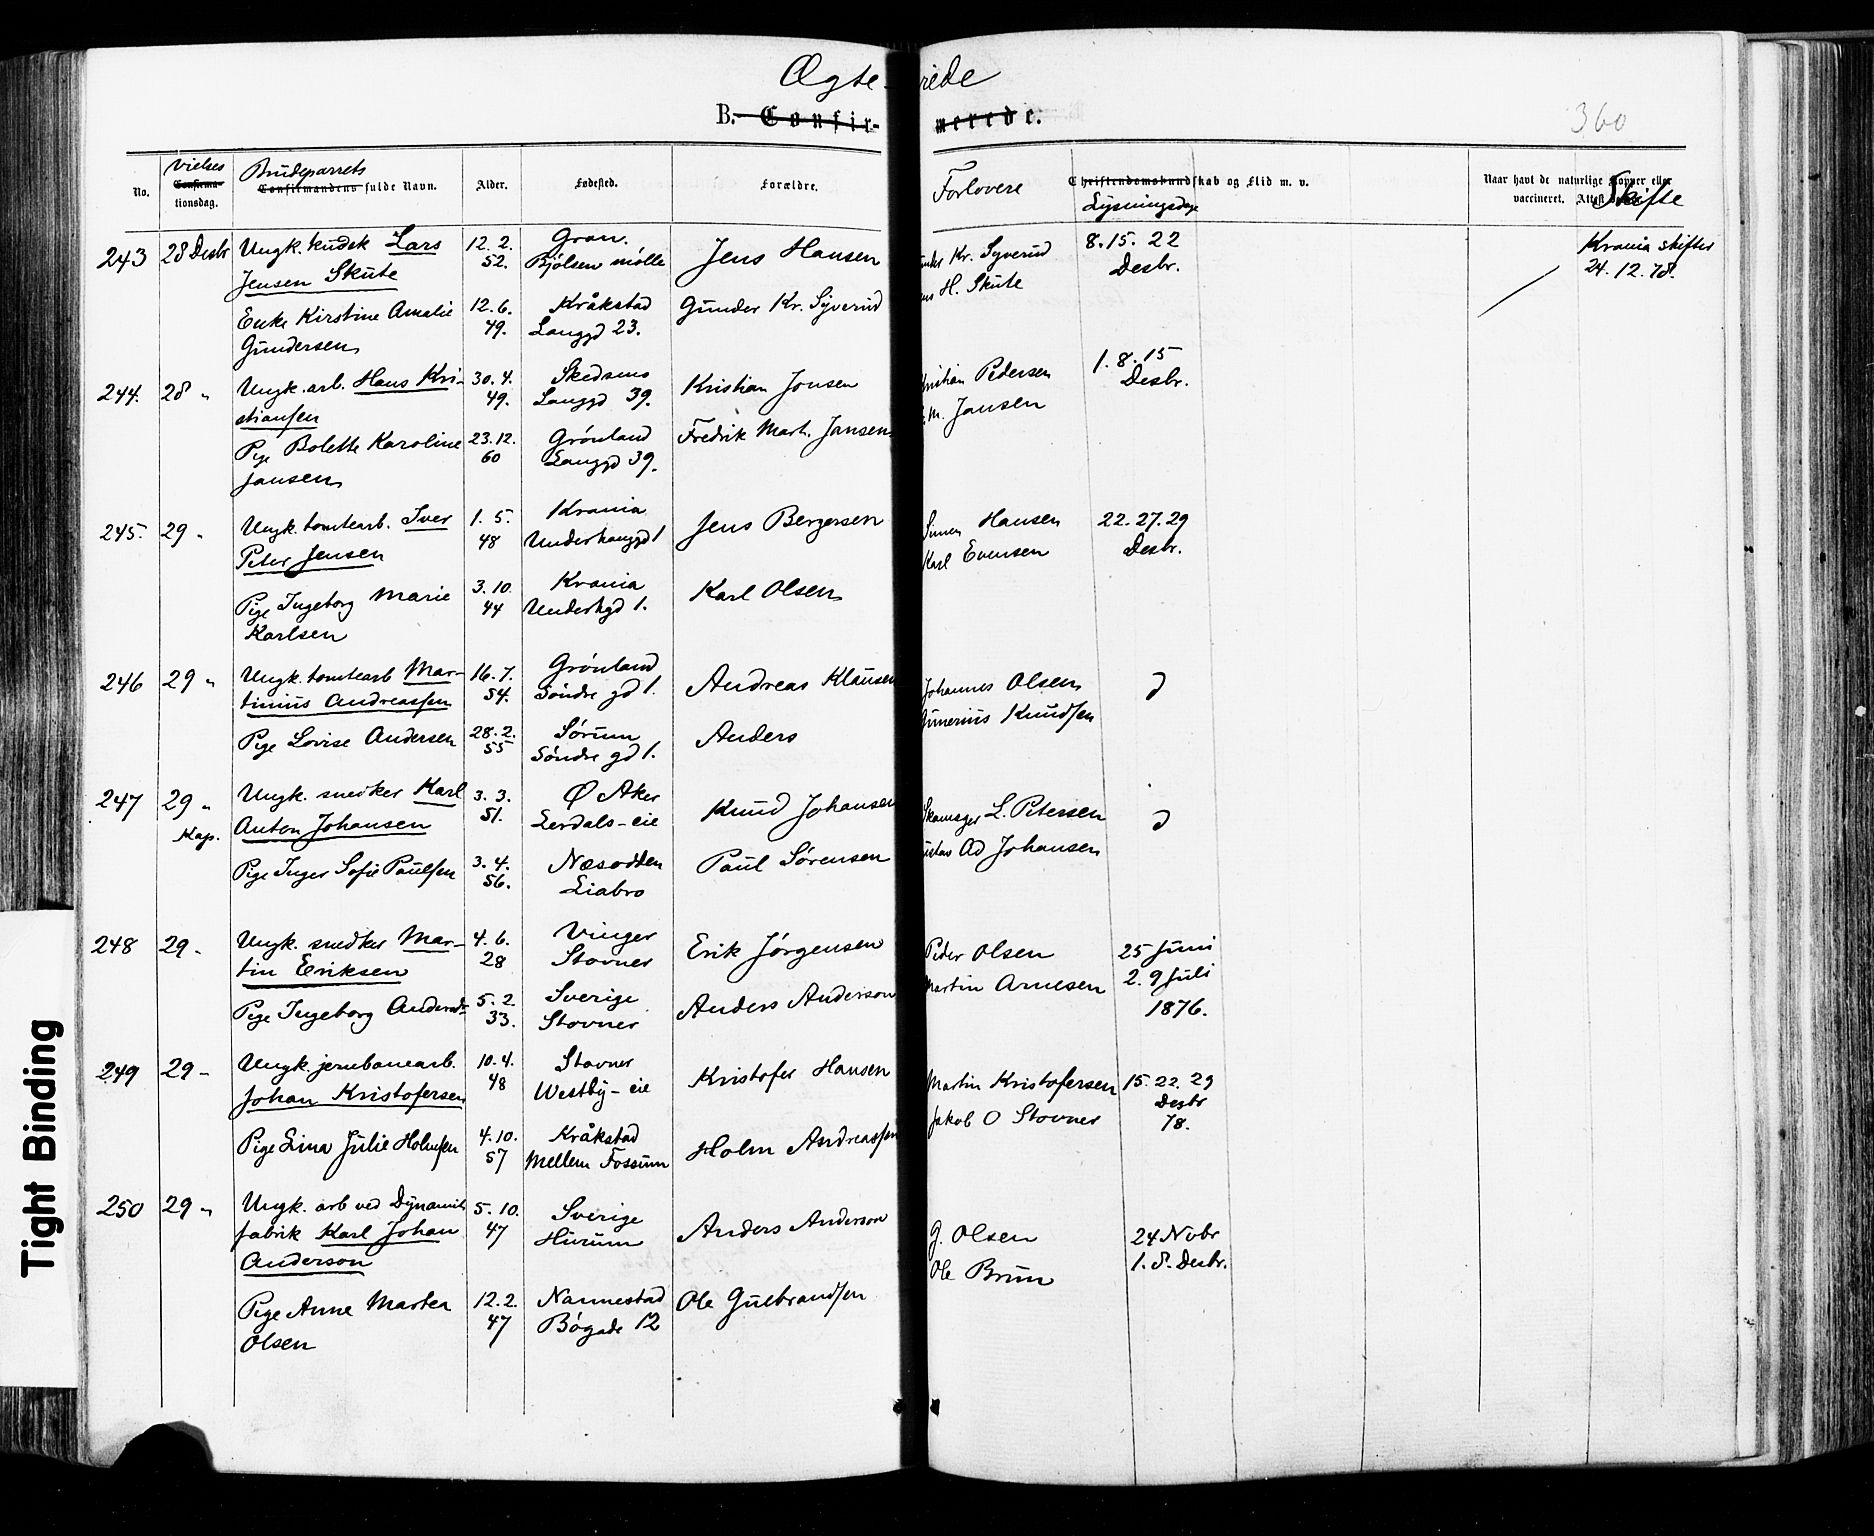 Ægte-viede
B. Confirmerede.
360
No.
Vielses
Confirma-
tionsdag.
Brudeparrets
Confirmandens fulde Navn.
Alder.
Fødested.
Forældre.
Forlovere
Christendomskundskab og Flid m. v.
Lysningsdage
Naar havt de naturlige Kopper eller
vaccineret. Attest
Skifte
243 28 Desbr Ungk. kudsk Lars 12. 2. Gran. Jens Hansen Kr. Syverud 8. 15. 22 Krania skifter
Jensen Skute 52. Bjölsen mölle H. Skute Desbr. 24. 12. 78.
Enke Kirstine Amalie 12. 6. Kråkstad Gunder Kr. Syverud
Gundersen 49. Langgd 23.
244. 28 " Ungk. arb. Hans Kri- 30. 4. Skedsmo Kristian Jonsen Pedersen 1. 8. 15
stiansen 49. Langgd 39. M. Jansen Desbr.
Pige Bolette Karoline 23. 12. Grönland Fredrik Mart. Jansen
Jansen 60 Langgd 39.
245. 29 " Ungk. tomtearb. Iver 1. 5. Krania Jens Bergersen Simen Hansen 22. 27. 29
Peter Jensen 48 Underhauggd 1 Karl Evensen Desbr.
Pige Ingeborg Marie 3. 10. Krania Karl Olsen
Karlsen 44 Underhgd 1.
246 29 " Ungk. tomtearb Mar- 16. 7. Grönland Andreas Klausen Johannes Olsen
tinius Andreassen 54. Söndre gd 1. Gunerius Knudsen
Pige Lovise Andersen 28. 2. Sørum Anders
55 Söndre gd 1.
247 29 " Ungk. snedker Karl 3. 3. Ø Aker Knud Johansen Skomager L. Petersen
Kap. Anton Johansen 51. Lerdals-eie Ad Johansen
Pige Inger Sofie Paulsen 3. 4. Næsodden Paul Sørensen
56. Liabro
248 29 - Ungk. snedker Mar- 4. 6. Vinger Erik Jørgensen Peder Olsen 25 Juni
tin Eriksen 28 Stovner Martin Arnesen 2. 9 Juli
Pige Ingeborg 5. 2. Sverige Anders Anderson 1876.
33. Stovner
249 29 - Ungk. jernbanearb. 10. 4. Stovner Kristofer Hansen Martin Kristofersen 15. 22. 29
Johan Kristofersen 48 Westby-eie Jakob O Stovner Desbr
Pige Lina Julie Holmsen 4. 10. Kråkstad Holm Andreassen 78.
57 Mellem Fossum
250 29 " Ungk. arb ved Dynamit 5. 10. Sverige Anders Anderson G. Olsen 24 Novbr
fabrik Karl Johan 47 Hurum Ole Brun 1. 8. Desbr.
Anderson
Pige Anne Martea 12. 2. Nannestad Ole Gulbrandsen
Olsen 47 Bögade 12
Tight Binding